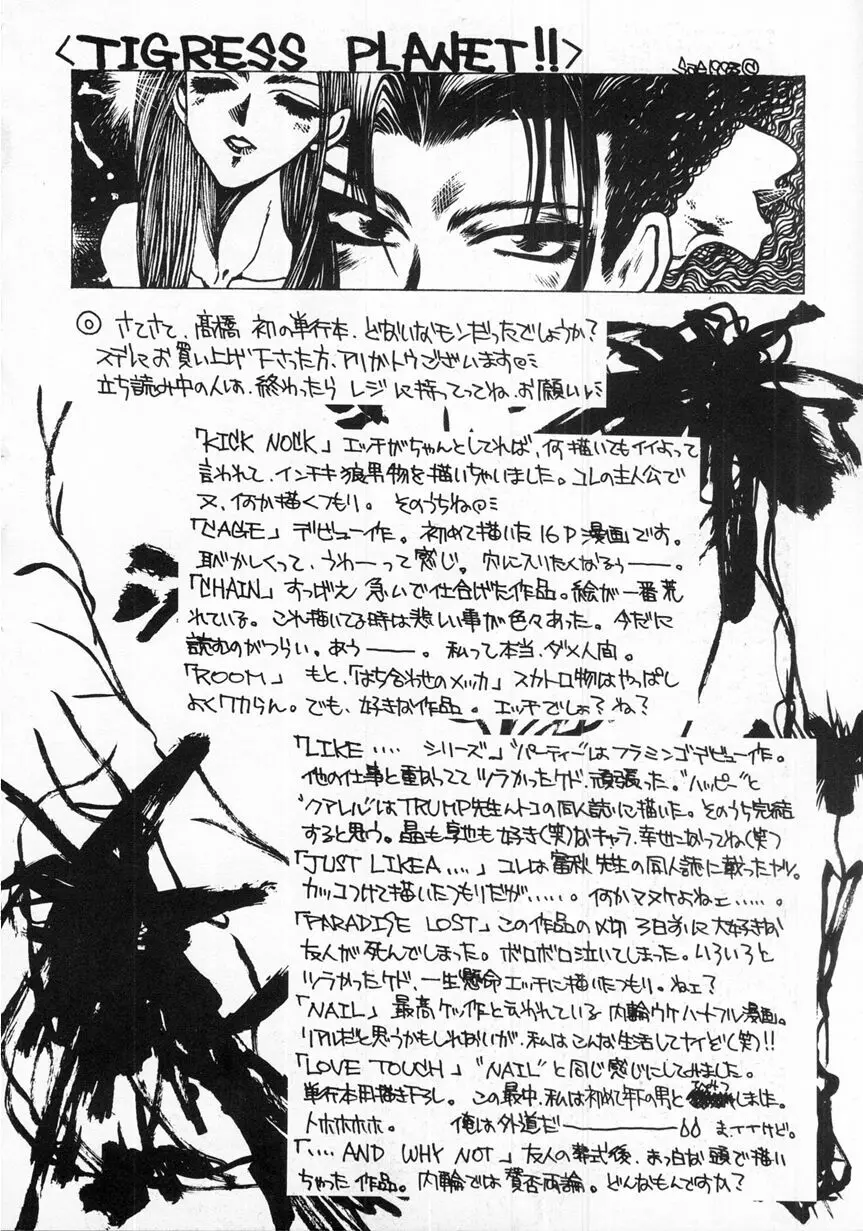 <TIGRESS PLANET!!>
◎ さてさて、高橋 初の単行本、どないなモンだったでしょうか?
スデにお買い上げ下さった方、アリがトウございます@ミ
立ち読み中の人は、終わったら レジ に持ってってね、お願いしミ
「KICK NOCK」 エッチがちゃんとしてれば、何描いてもイイよって
言われて、インチキ狼男物を描いちゃいました。コレの主人公で
又、何か描くつもり。 そのうちね@ミ
「CAGE」 デビュー作。 初めて描いた16P漫画です。
恥かしくって、うわーーって感じ。 穴に入りたくなるぅーーー。
「CHAIN」 すっげえ 急いで仕上げた作品。絵が一番荒
れている。 これ描いてる時は悲しい事が色々あった。 今だに
読むのがつらい。あうーーー。 私って本当、ダメ人間。
「ROOM」 もと、「はち合わせのメッカ」 スカトロ物はやっぱし
よくワカらん。でも、好きな作品。 エッチでしょ?ね?
「LIKE .... シリーズ」 "パーティー"はフラミンゴデビュー作。
他の仕事と重なってて ツラかったケド、頑張った。"ハッピー"と
"クアレル"はTRUMP先生ントコの同人誌に描いた。そのうち完結
すると思う。晶も卓也も好き(笑)なキャラ、幸せになってね(笑)
「JUST LIKE A ....」 コレは 富秋 先生の同人誌に載ったヤツ。
カッコつけて描いたつもりだが.....。 何かマヌケよねェ.....。
「PARADISE LOST」 この作品の〆切 3日前に 大好きな
友人が 死んでしまった。ボロボロ泣いてしまった。いろいろと
ツラかったケド、一生懸命 エッチに描いたつもり。ねェ?
「NAIL」 最高ケッ作と云われている 内輪ウケハートフル漫画。
リアルだと思うかもしれないが、私は こんな生活してナイどく(笑)!!
「LOVE TOUCH」 "NAIL"と同じ感じにしてみました。
単行本用描き下ろし。 この最中、私は初めて年下の男と しました。
トホホホホ。 俺は外道だーーーーー ま、イイけど。
「.... AND WHY NOT」 友人の葬式後、まっ白な頭で描い
ちゃった作品。内輪では 賛否両論。どんなもんですか?